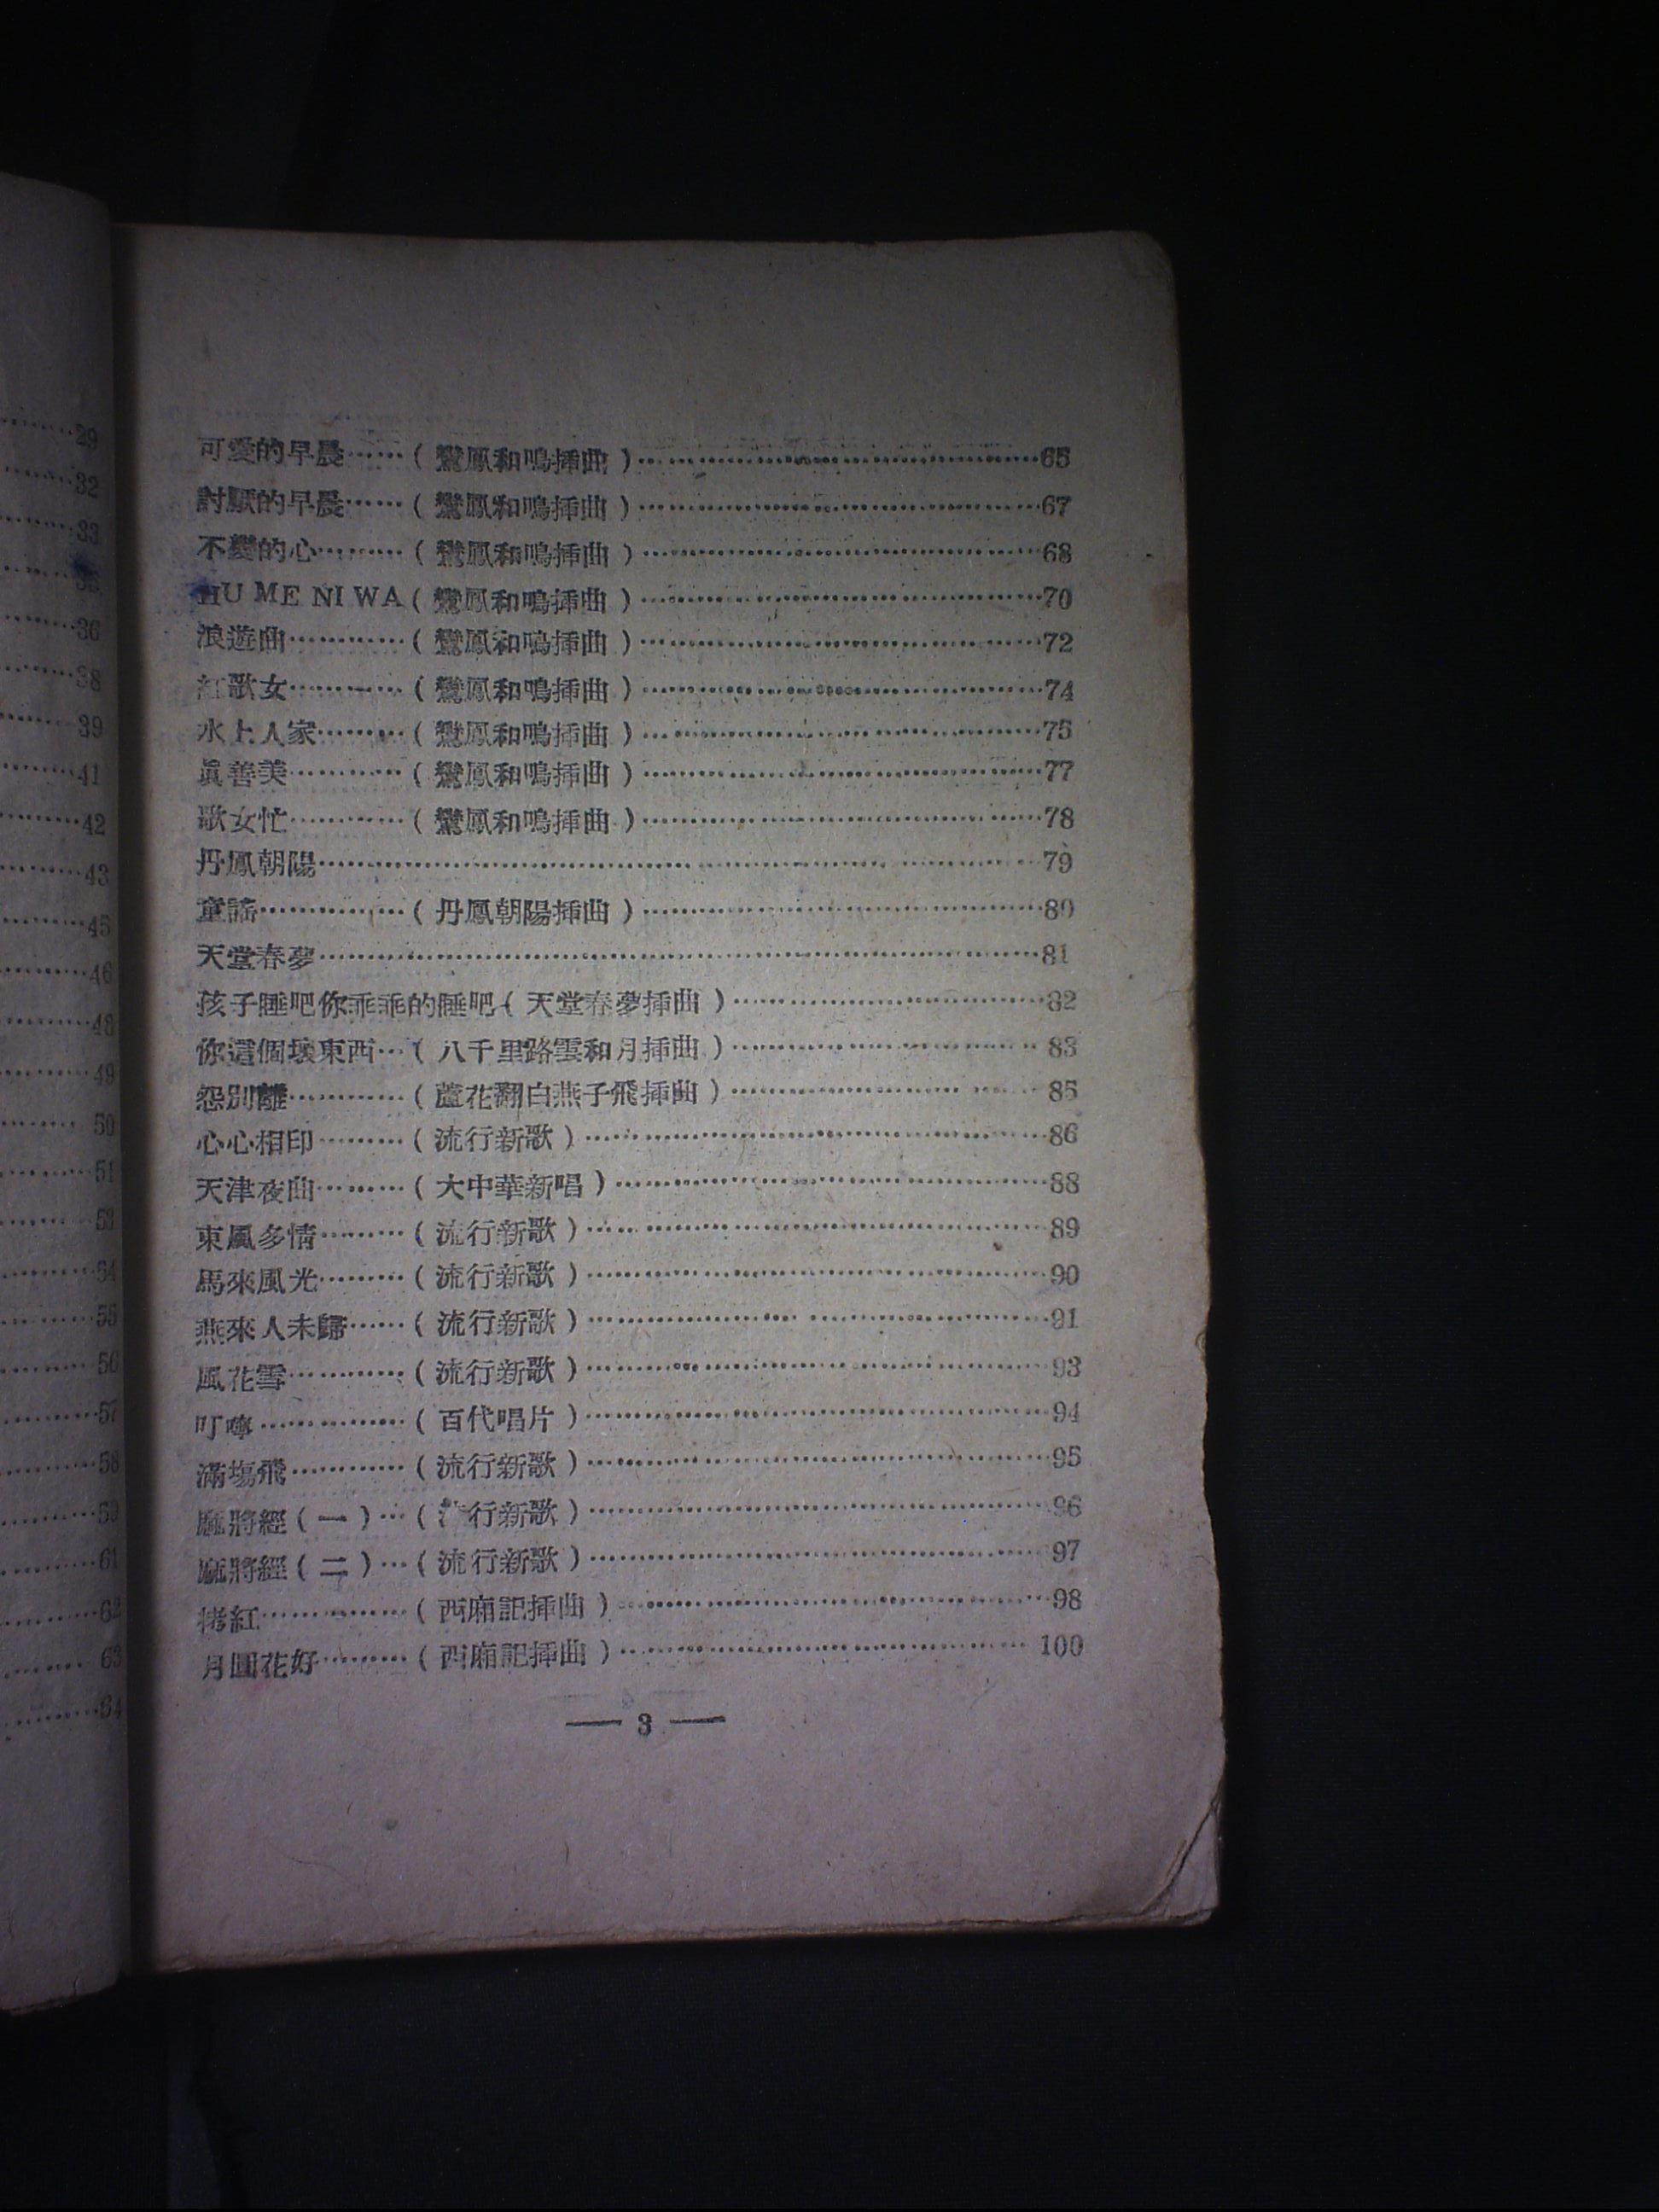 29
32
33
36
38
39
41
42
43
45
46
48
49
50
51
53
54
55
56
57
58
59
61
62
63
64
可愛的早晨……（鸞鳳和鳴揷曲）……65
討厭的早晨……（鸞鳳和鳴揷曲）……67
不變的心………（鸞鳳和鳴揷曲）……68
HU ME NI WA（鸞鳳和鳴揷曲）……70
浪遊曲…………（鸞鳳和鳴揷曲）……72
紅歌女…………（鸞鳳和鳴揷曲）……74
水上人家………（鸞鳳和鳴揷曲）……75
眞善美…………（鸞鳳和鳴揷曲）……77
歌女忙…………（鸞鳳和鳴揷曲）……78
丹鳳朝陽……79
童謠……………（丹鳳朝陽揷曲）……80
天堂春夢……81
孩子睡吧你乖乖的睡吧（天堂春夢揷曲）……82
你這個壞東西…（八千里路雲和月揷曲）……83
怨別離…………（蘆花翻白燕子飛揷曲）……85
心心相印………（流行新歌）……86
天津夜曲………（大中華新唱）……88
東風多情………（流行新歌）……89
馬來風光………（流行新歌）……90
燕來人未歸……（流行新歌）……91
風花雪…………（流行新歌）……93
叮嚀……………（百代唱片）……94
滿塲飛…………（流行新歌）……95
麻將經（一）…（流行新歌）……96
麻將經（二）…（流行新歌）……97
拷紅……………（西廂記揷曲）……98
月圓花好………（西廂記揷曲）……100
— 3 —